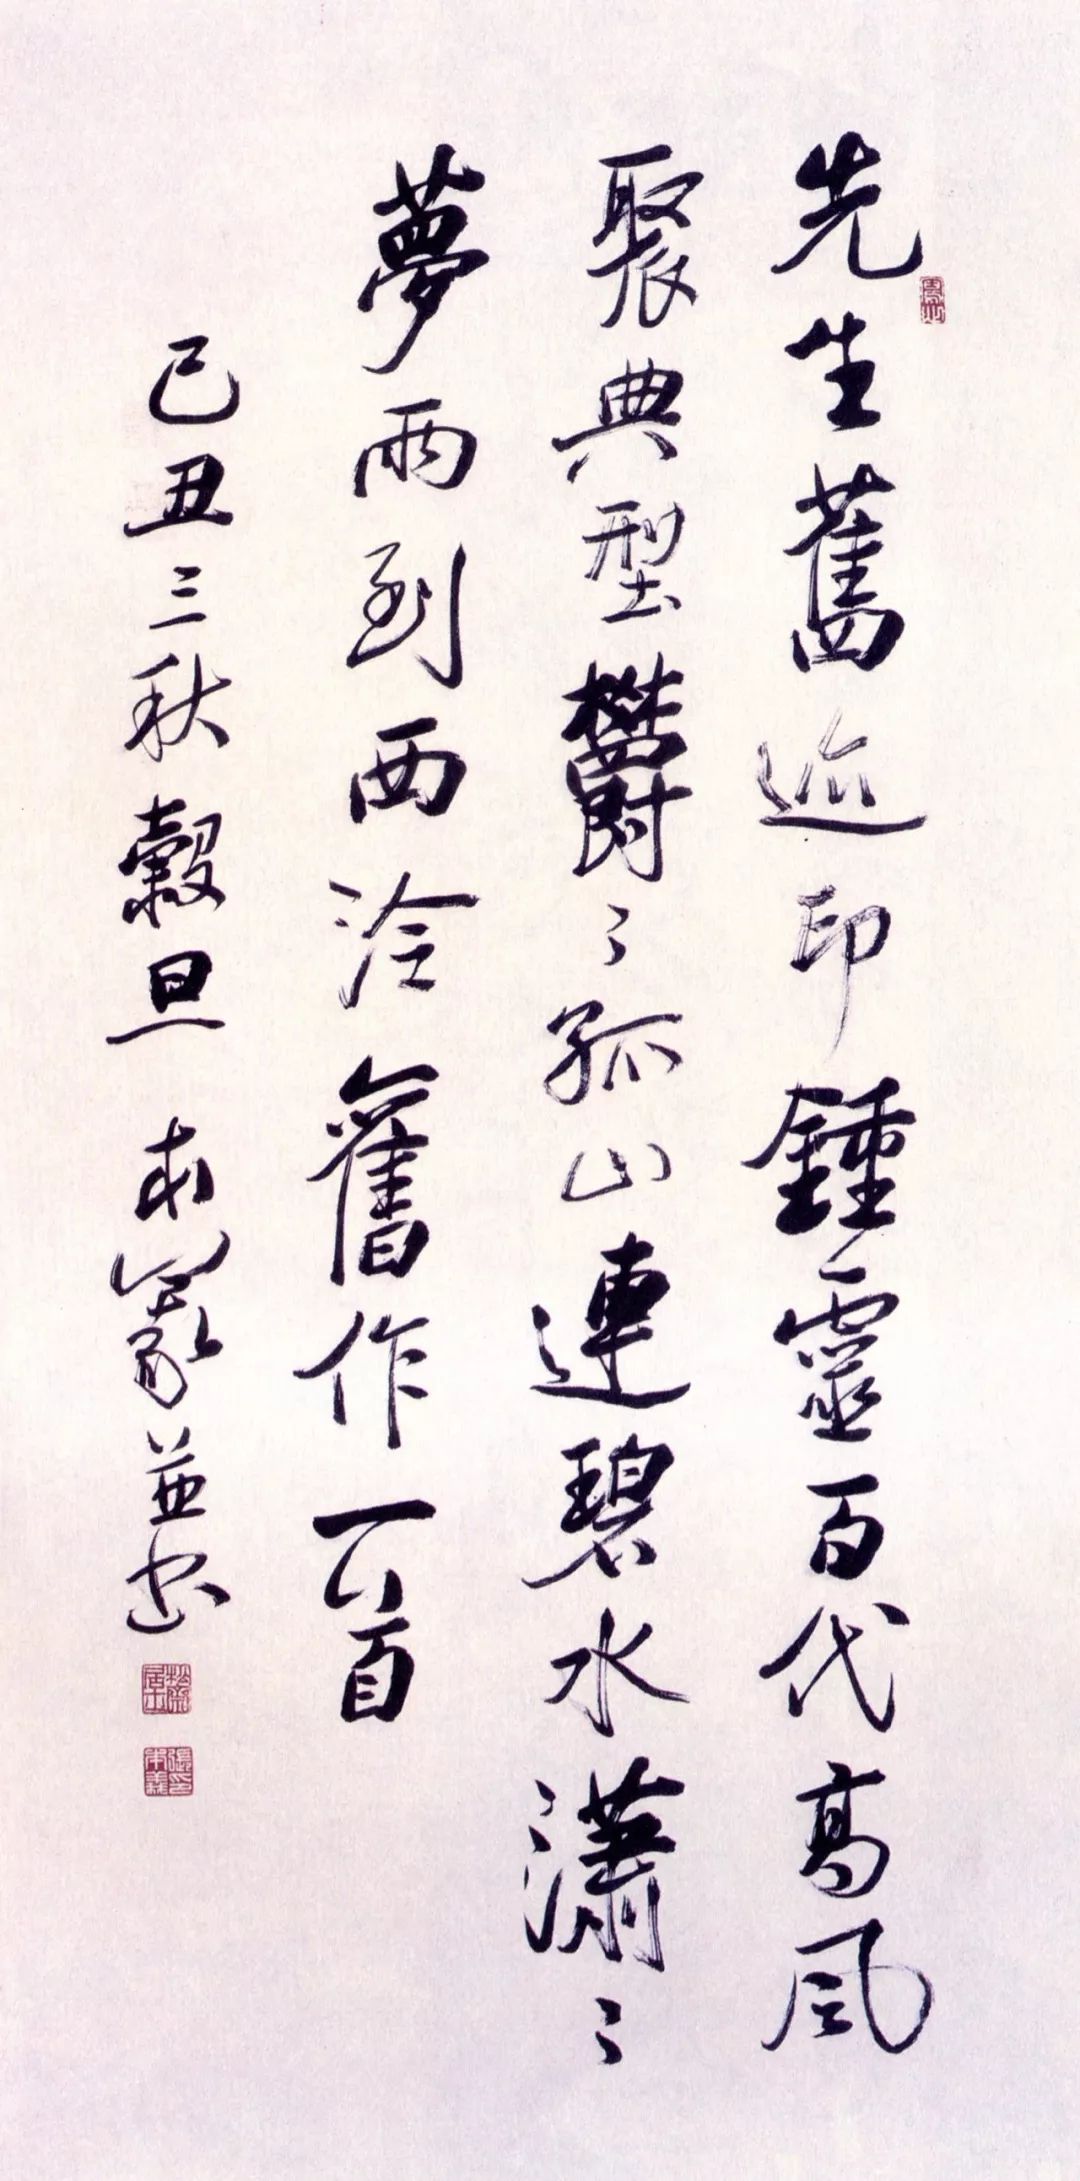 先生舊迹印鍾靈百代高風
聚典型鬱〻孤山連碧水瀟〻
夢雨到西泠舊作一首
己丑三秋穀旦 並書